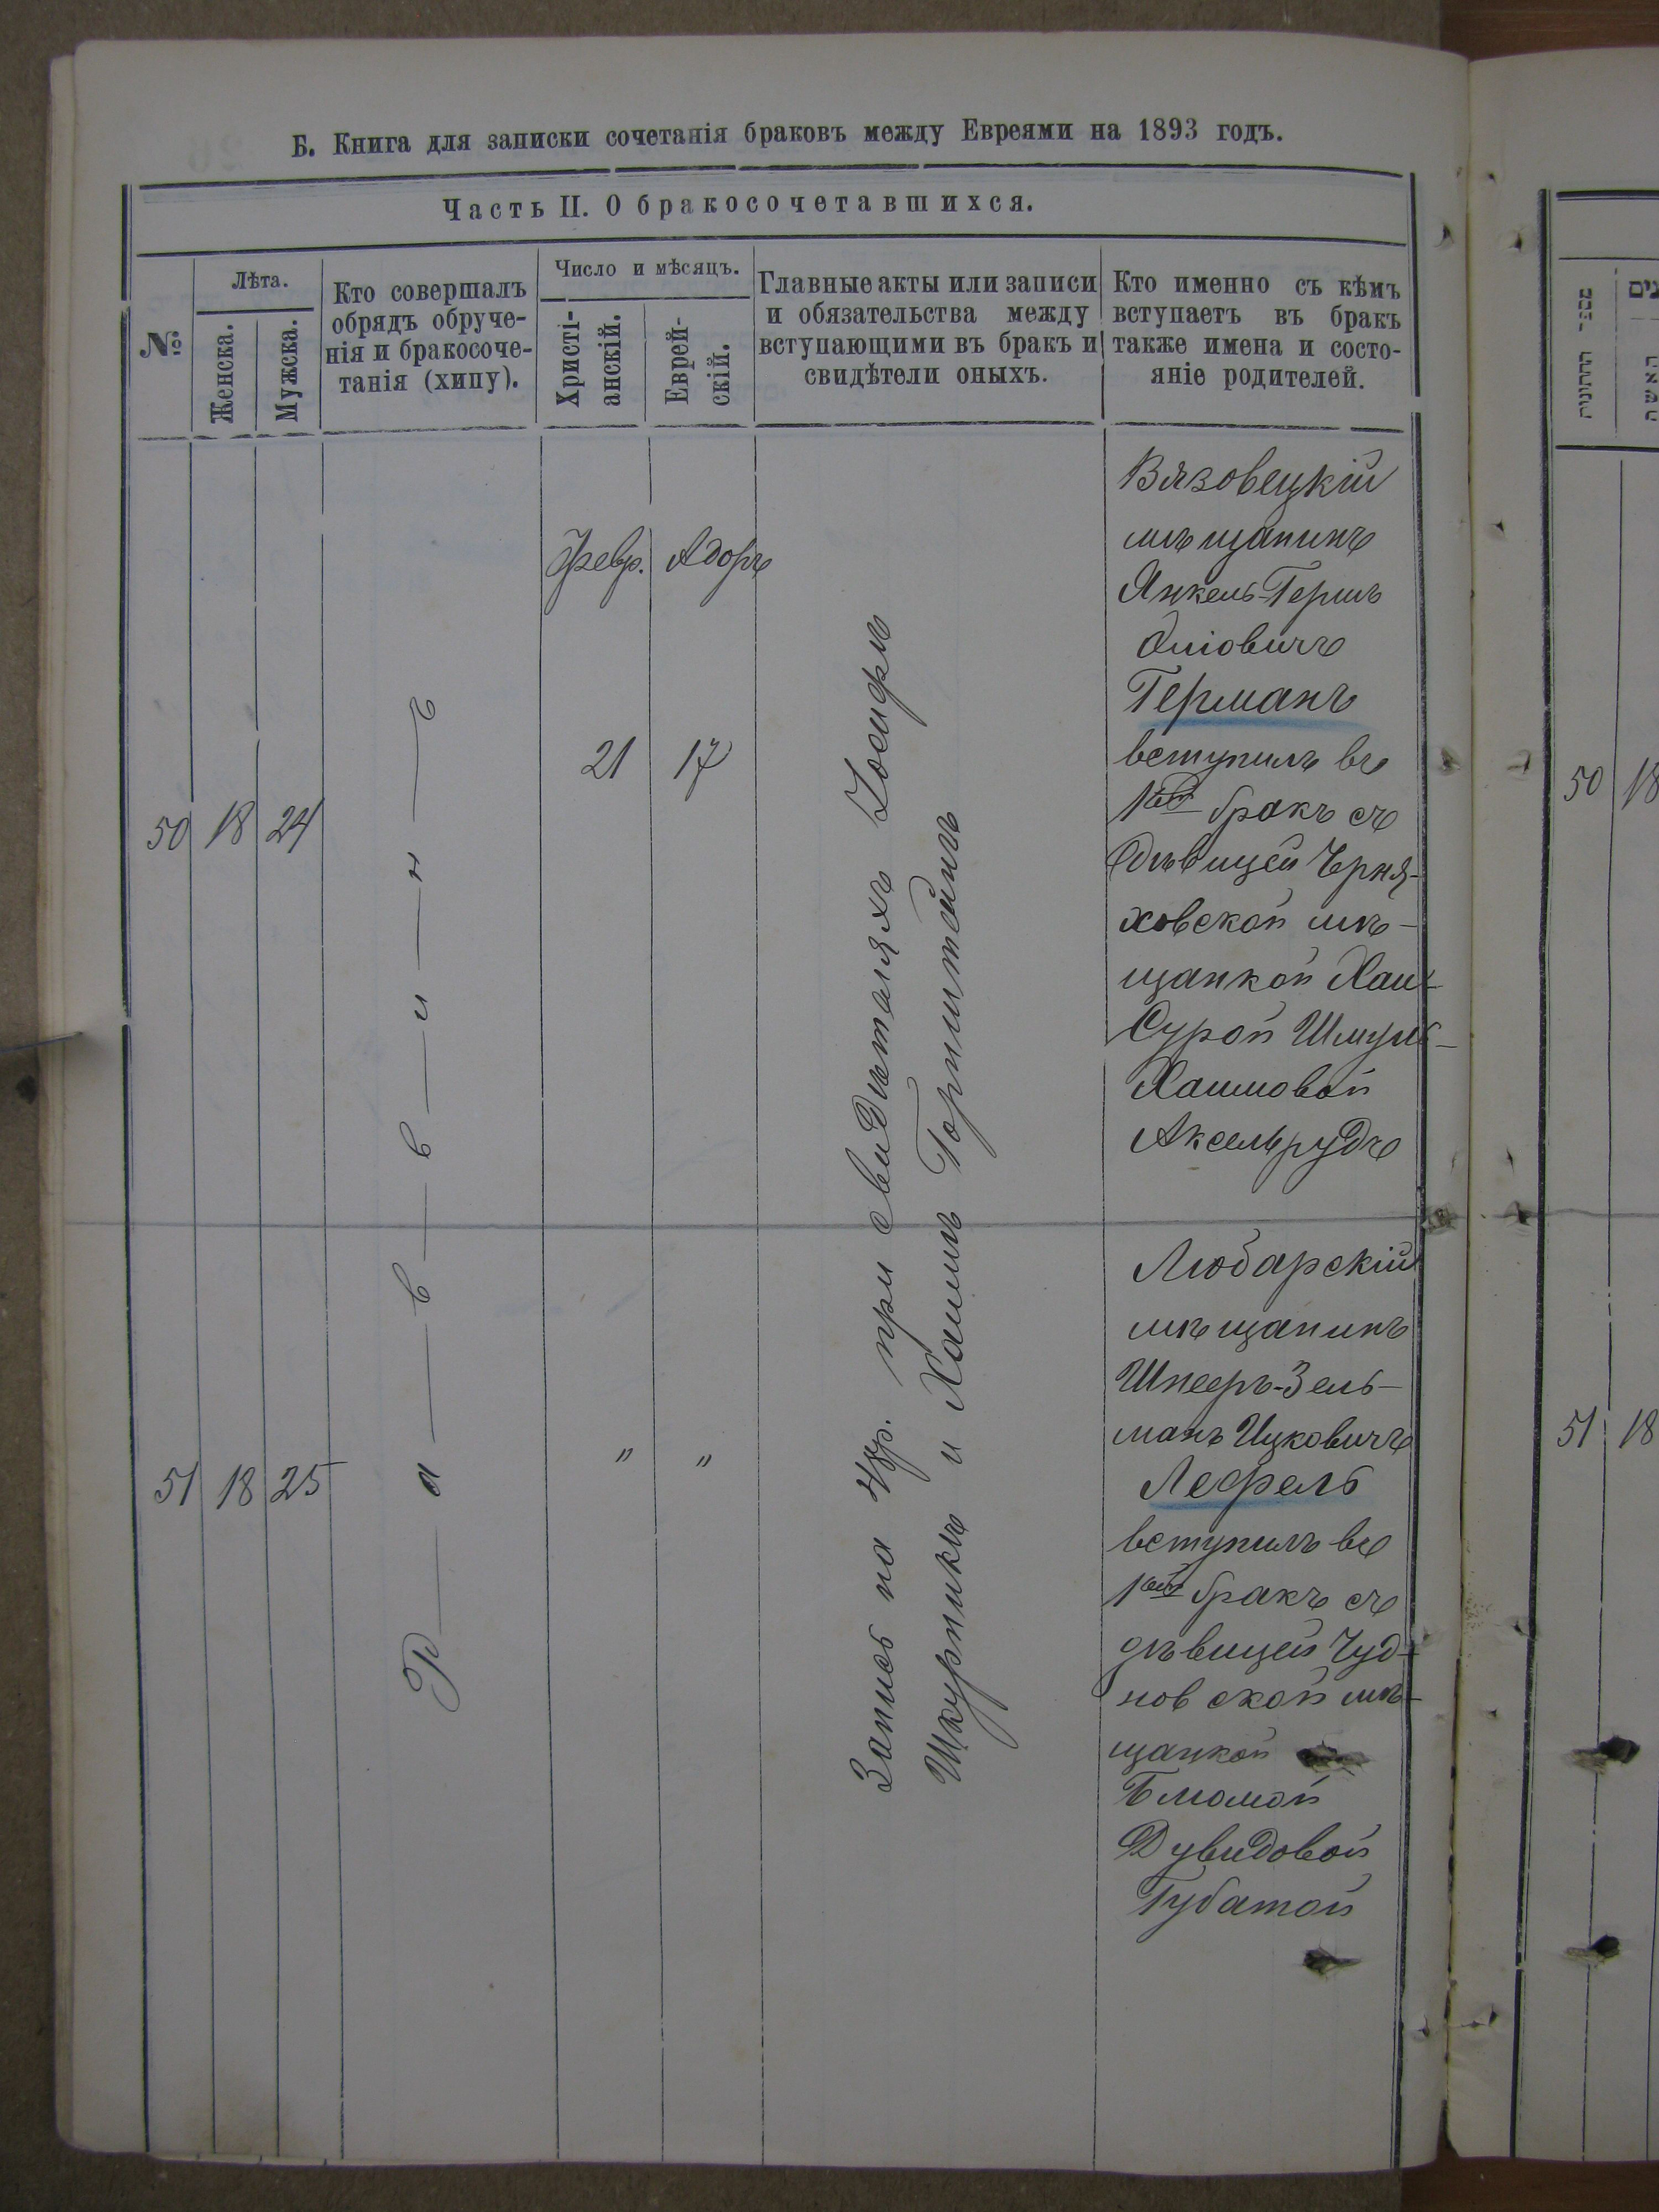 Б. Книга для записки сочетанія браковъ между Евреями на 1893 годъ.
Часть II. О бракосочетавшихся.
№
Лѣта.
Женска.
Мужска.
Кто совершалъ
обрядъ обруче-
нія и бракосоче-
танія (хипу).
Число и мѣсяцъ.
Христі-
анскій.
Еврей-
скій.
Главные акты или записи
и обязательства между
вступающими въ бракъ и
свидѣтели оныхъ.
Кто именно съ кѣмъ
вступаетъ въ бракъ
также имена и состо-
яніе родителей.
50 18 24
Раввинъ
Февр. Адоръ
21 17
Запись на 48р. при свидѣтеляхъ Іосифъ
Шкурникъ и Хаимъ Горнштейнъ
Вязовецкій
мѣщанинъ
Янкель-Гершъ
Германъ
вступилъ въ
1ый бракъ съ
дѣвицей Черня-
ховской мѣ-
щанкой Хаи-
Сурой Шмуль-
Хаимовой
Аксельрудъ
51 18 25
" "
Любарскій
мѣщанинъ
Шнееръ-Зель-
манъ Ицковичъ
Лефель
вступилъ въ
1ый бракъ съ
дѣвицей Чуд-
новской мѣ-
щанкой
Блюмой
Дувидовой
Губатой
50 18
51 18